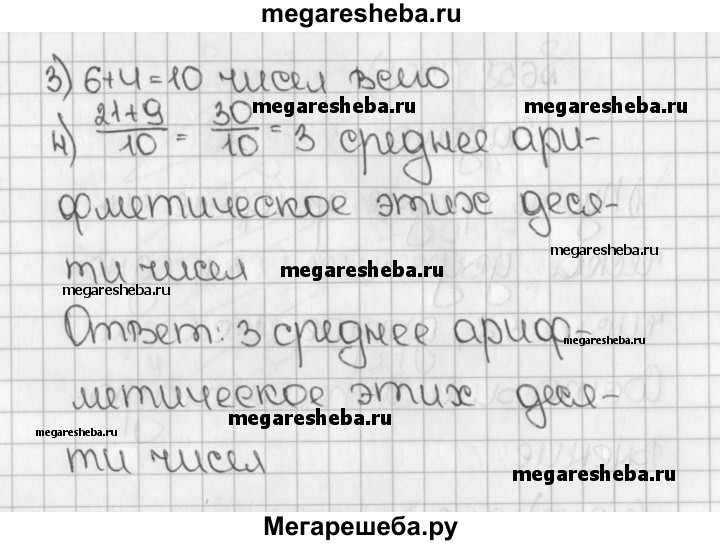 megaresheba.ru
3) 6+4=10 чисел всего
megaresheba.ru megaresheba.ru
4) 21+9/10 = 30/10 = 3 среднее ари-
фметическое этих деся-
megaresheba.ru
ти чисел megaresheba.ru
megaresheba.ru
Ответ: 3 среднее ариф-
megaresheba.ru
метическое этих деся-
megaresheba.ru
megaresheba.ru
ти чисел
megaresheba.ru
Мегарешеба.ру